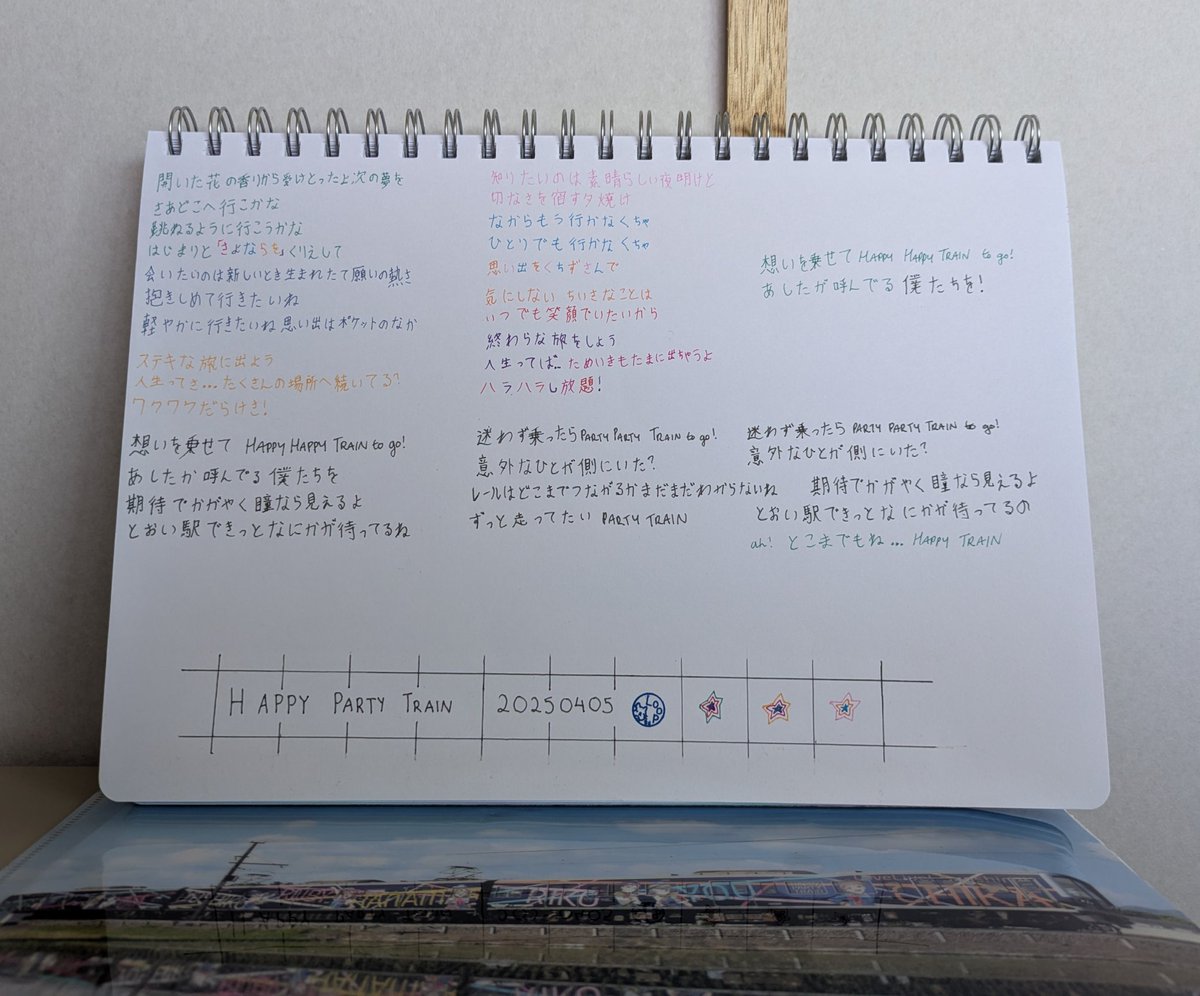 開いた花の香りから受けとったよ次の夢を
さあどこへ行こかな
跳ねるように行こうかな
はじまりと「さよならを」くりえして
会いたいのは新しいとき生まれたて願いの熱さ
抱きしめて行きたいね
軽やかに行きたいね思い出はポケットのなか
ステキな旅に出よう
人生ってさ…たくさんの場所へ続いてる?
ワクワクだらけさ!
想いを乗せて HAPPY HAPPY TRAIN to go!
あしたが呼んでる僕たちを
期待でかがやく瞳なら見えるよ
とおい駅できっとなにかが待ってるね
知りたいのは素晴らしい夜明けと
切なさを宿す夕焼け
ながらもう行かなくちゃ
ひとりでも行かなくちゃ
思い出をくちずさんで
気にしない ちいさなことは
いつでも笑顔でいたいから
終わらな旅をしよう
人生ってば…ためいきもたまに出ちゃうよ
ハラハラし放題!
迷わず乗ったらPARTY PARTY TRAIN to go!
意外なひとが側にいた?
レールはどこまでつながるかまだまだわからないね
ずっと走ってたい PARTY TRAIN
想いを乗せて HAPPY HAPPY TRAIN to go!
あしたが呼んでる僕たちを!
迷わず乗ったら PARTY PARTY TRAIN to go!
意外なひとが側にいた?
期待でかがやく瞳なら見えるよ
とおい駅できっとなにかが待ってるの
ah! どこまでもね… HAPPY TRAIN
HAPPY PARTY TRAIN 20250405
RIKO
CHIKA